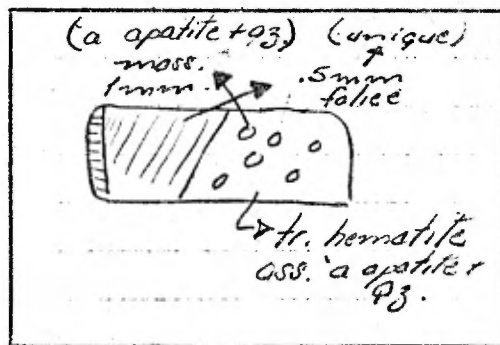 (a apatite + qz.) (unique)
mass. .5mm
1mm. folieé
tr. hematite
ass. à apatite +
qz.